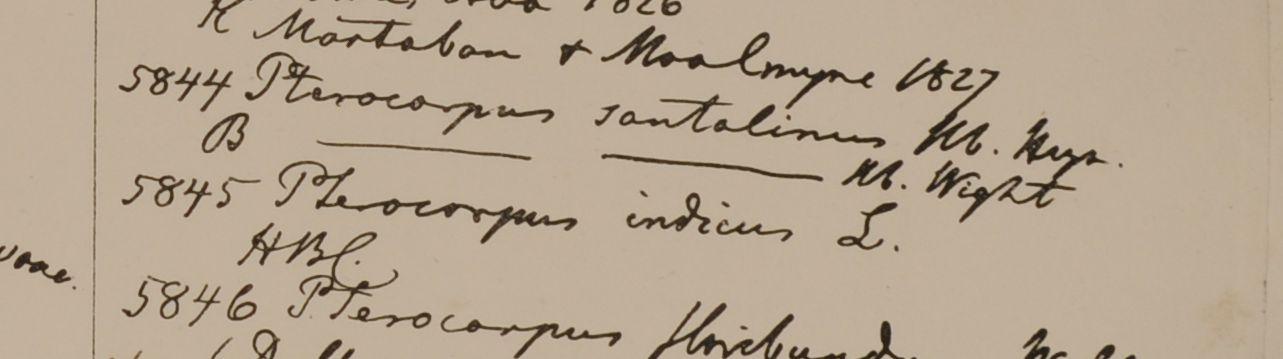 1826
K Martaban & Moalmyne 1827
5844 Pterocarpus santalinus Hb. Heyn.
B ——— ——— Hb. Wight
5845 Pterocarpus indicus L.
HBC.
5846 Pterocarpus floribund